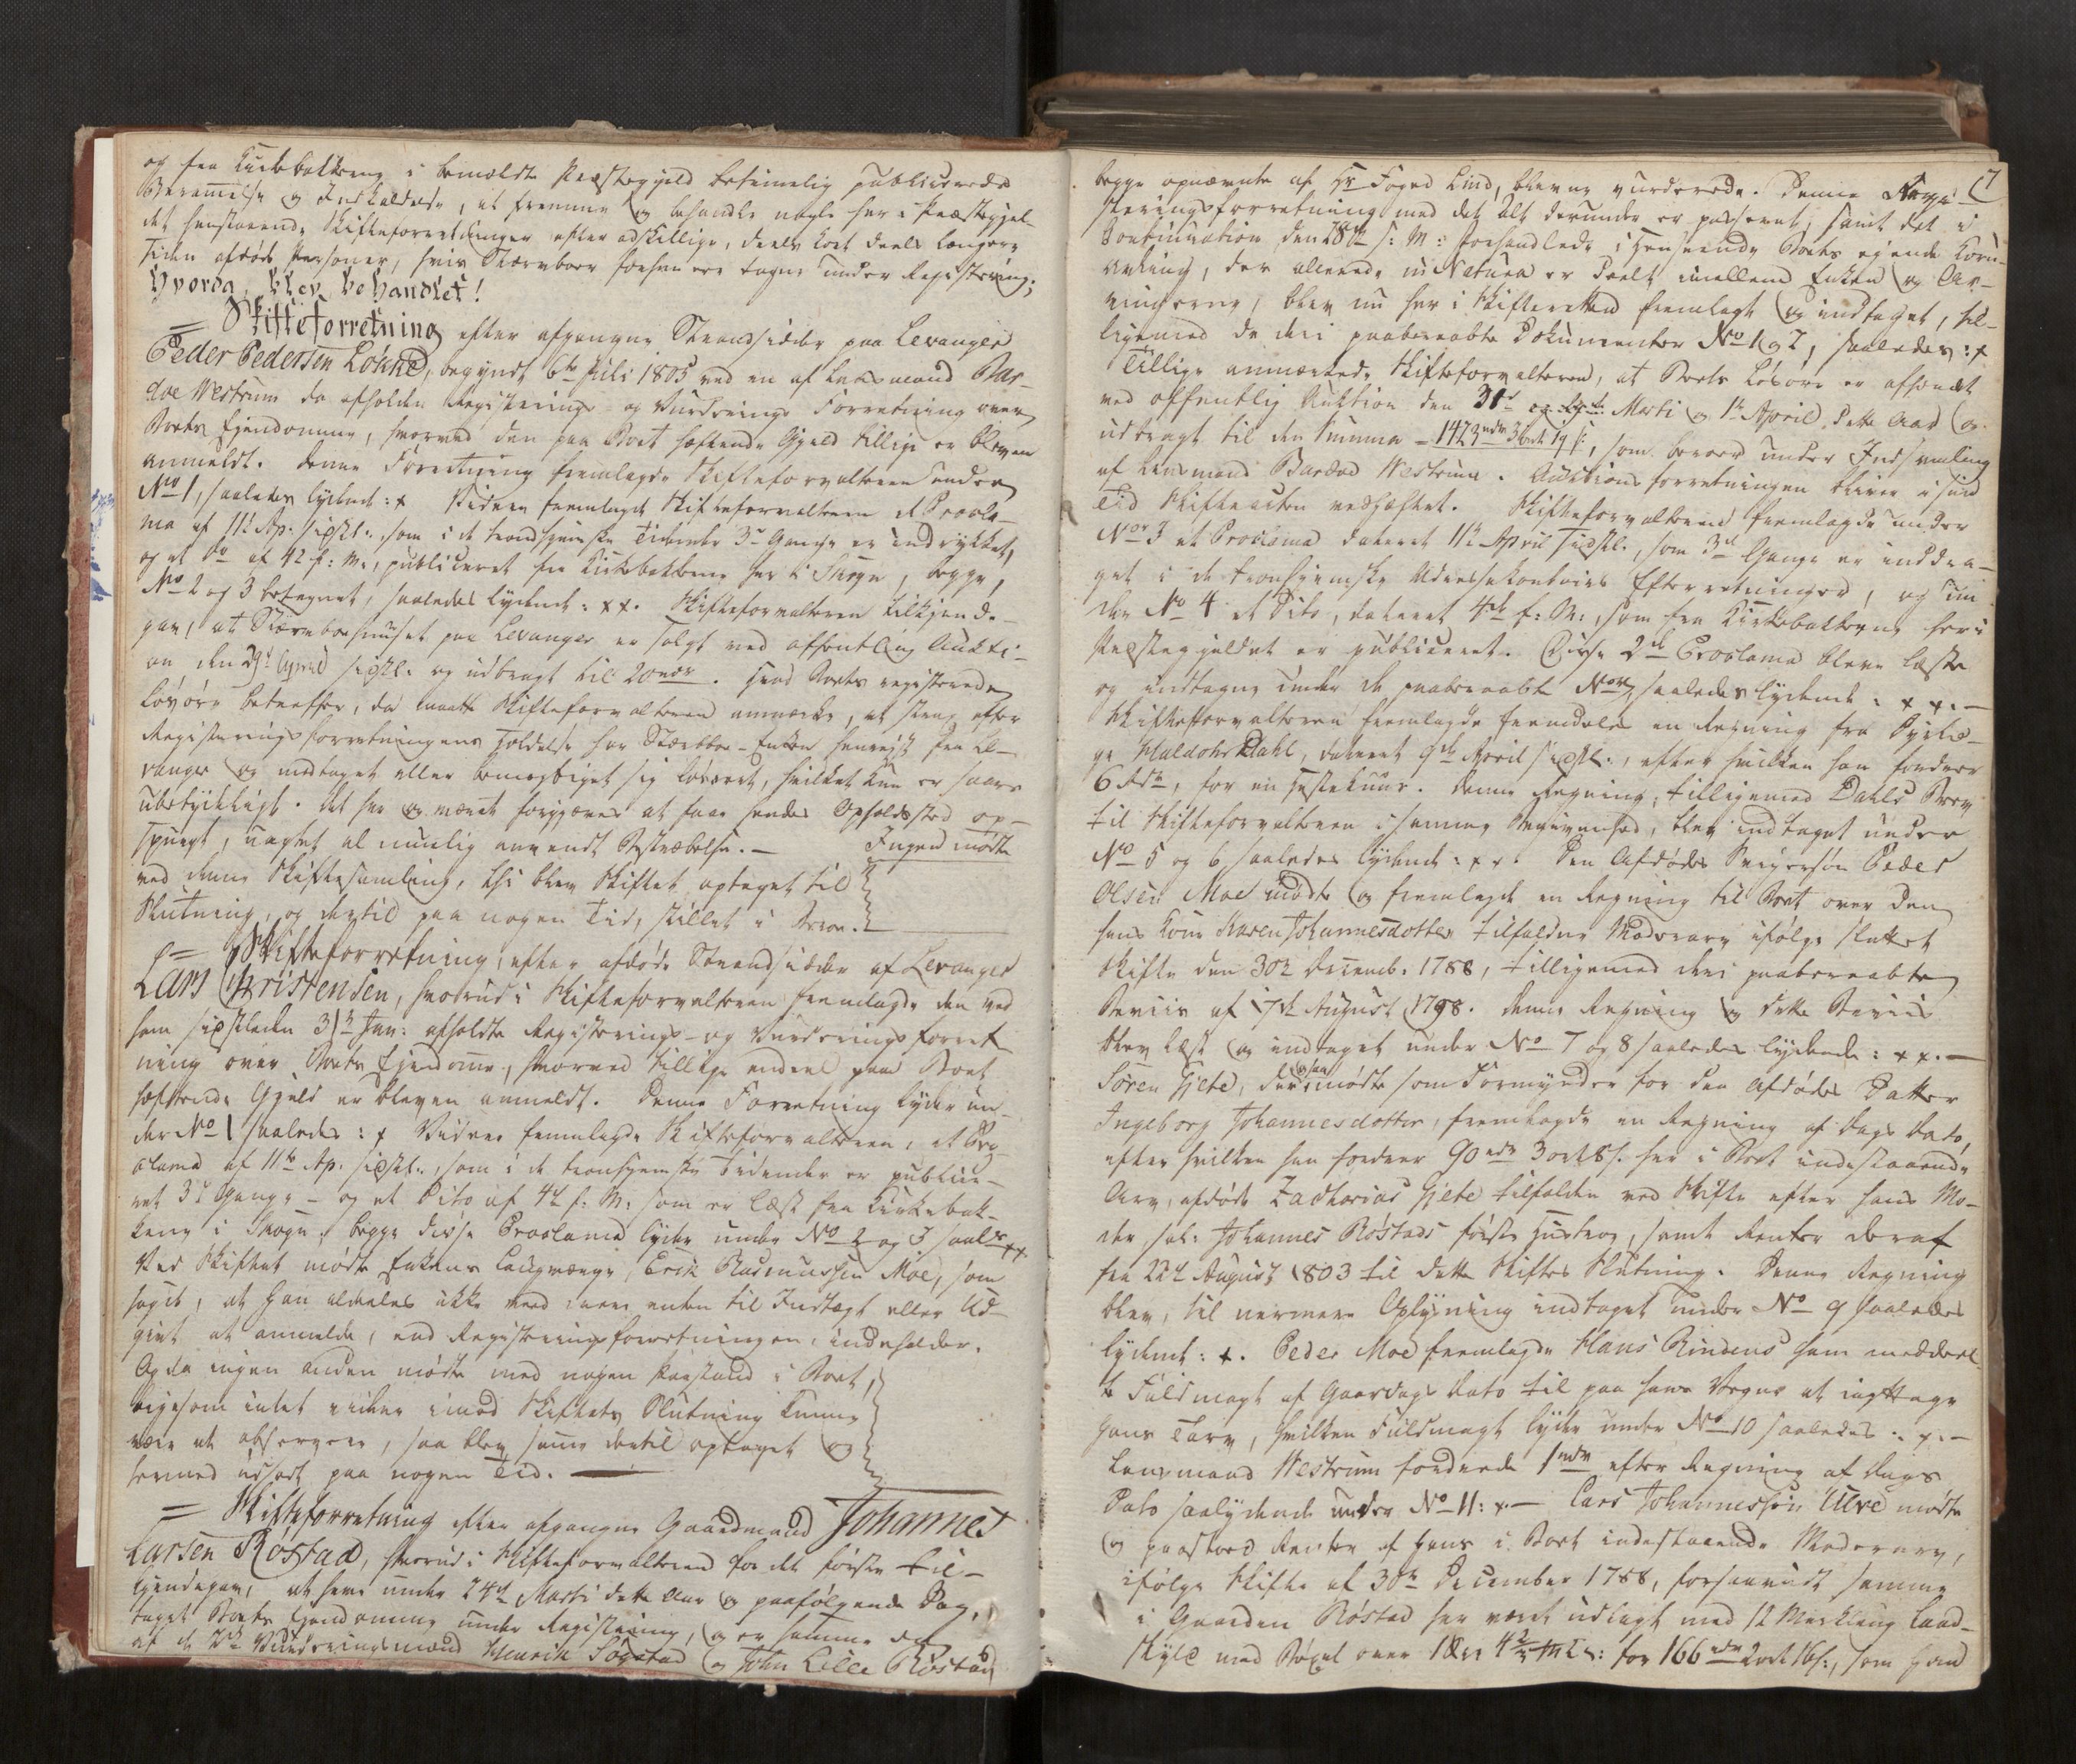 og fra Kirkebakkerne i bemeldte Præstegjeld betimelig publicerede
Berammelse og Indkaldelse, at fremme og behandle nogle her i Præstegjel-
det henstaaende Skifteforretninger efter adskillige, deels kort deels længere
siden afdøde Personer, hvis Stervboer forhen ere tagne under Registering;
Hvorda blev behandlet!
= Skifteforretning efter afgangne Strandsidder paa Levanger
Peder Pedersen Lökke, begyndt 6te Juli 1805 ved en af Lensmand Bar-
doe Westrum da afholden Registerings- og Vurderings Forretning over
Boets Ejendomme, hvorved den paa Boet hæftende Gjeld tillige er bleven
anmeldt. Denne Forretning fremlagde Skifteforvalteren under
No 1, saaledes lydende: x Videre fremlagde Skifteforvalteren et Procla-
ma af 11te Ap. sidstl., som i de trondhjemske Tidender 3de Gange er indrykket,
og et do af 42 f: M:, publiceret fra Kirkebakkerne her i Skogn, begge,
No 2 og 3 betegnet, saaledes lydende: x x. Skifteforvalteren tilkjende-
gav, at Stervboehuuset paa Levanger er solgt ved offentlig Aukti-
on den 29de April sidstl. og udbragt til 20 ndr. Hvad Boets registerede
Løsøre betreffer, da maatte Skifteforvalteren anmærke, at strax efter
Registeringsforretningens Holdelse har Stærvboe-Enken henrejst fra Le-
vanger og medtaget eller bemægtiget sig Løsøret, hvilket kun er saare
ubetydeligt. Det har og været forgjæves at faae hendes Opholdssted op-
spurgt, uagtet al muelig anvendt Bestræbelse. — Ingen mødte
ved denne Skiftesamling, thi blev Skiftet optaget til
Slutning, og dertil paa nogen Tid, stillet i Beroe.
= Skifteforretning, efter afdøde Strandsidder af Levanger
Lars Christensen, hvorudi Skifteforvalteren fremlagde den ved
ham sidstleden 31te Jan: afholdte Registerings- og Vurderingsforret-
ning over Boets Ejendomme, hvorved tillige endeel paa Boet
hæftende Gjeld er bleven anmeldt. Denne Forretning lyder un-
der No 1 saaledes: x Videre fremlagde Skifteforvalteren, et Pro-
clama af 11te Ap. sidstl., som i de tronhjemske Tidender er publice-
ret 3de Gange - og et Dito af 4de f: M: som er læst fra Kirkebak-
kerne i Skogn, begge disse Proclama lyder under No 2 og 3 saaledes xx
Ved Skiftet mødte Enkens Laugværge, Erik Rasmussen Moe, som
sagde, at han aldeles ikke veed mere enten til Indtægt eller Ud-
givt at anmelde, end Registeringsforretningen indeholder.
Og da ingen anden mødte med nogen Paastand i Boet,
ligesom intet videre imod Skiftets Slutning kunne
være at observere, saa blev samme dertil optaget og
hermed udsat paa nogen Tid.
= Skifteforretning efter afgangne Gaardmand Johannes
Larsen Röstad, hvorudi Skifteforvalteren for det første til-
kjendegav, at have under 24de Martii dette Aar og paafølgende Dag,
taget Boets Ejendomme under Registering, og er samme da
af de 2de Vurderingsmænd Henrik Sögstad og John Lille Röstad,
7
begge opnævnte af Hr Foged Lind, bleven vurderede. Denne Regi-
steringsforretning med det Alt derunder er passeret, samt det i
Continuation den 28de s: M: forhandlede i Henseende Boets ejende Korn-
avling, der allerede in Natura er deelt imellem Enken og Ar-
vingerne, blev nu her i Skifteretten fremlagt og indtaget, til-
ligemed de deri paaberaabte Dokumenter No 1 og 2, saaledes: x
Tillige anmærkede Skifteforvalteren, at Boets Løsøre er afhændet
ved offentlig Auktion den 31te Marti og 1te April dette Aar og
udbragt til den Summa - 1423 ndr 3 ort 19 s:, som beroer under Indsamling
af Lensmand Bardoe Westrum. Auktionsforretningen bliver i sin
Tid Skifteacten vedhæftet. Skifteforvalteren fremlagde under
No 3 et Proclama dateret 11te April sidstl., som 3de Gange er inddra-
get i de tronhjemske Adressekontoirs Efterretninger, og un-
der No 4 et Dito, dateret 4de f: M:, som fra Kirkebakkerne her i
Præstegjeldet er publiceret. Disse 2de Proclama bleve læste
og indtagne under de paaberaabte Nor, saaledes lydende: x x. —
Skifteforvalteren fremlagde fremdeles en Regning fra Dyrlæ-
ge Maldohr Dahl, dateret 9de April sidstl., efter hvilken han fordrer
6 Rdr, for en Hestekuur. Denne Regning, tilligemed Dahls Brev
til Skifteforvalteren i samme Anledning, blev indtaget under
No 5 og 6 saaledes lydende: x x. Den Afdødes Svigersøn Peder
Olsen Moe mødte og fremlagde en Regning til Boet over Den
hans Kone Karen Johannesdotter tilfaldne Mødrearv ifølge sluttet
Skifte den 30te Decemb. 1788, tilligemed deri paaberaabte
Beviis af 7de August 1798. Denne Regning og dette Beviis
blev læst og indtaget under No 7 og 8 saaledes lydende: x x. —
Sören Gjete, der ogsaa mødte som Formynder for den Afdødes Datter
Ingeborg Johannesdotter, fremlagde en Regning af Dags Dato,
efter hvilken han fordrer 90 ndr 3 ort 8 s. her i Boet indestaaende
Arv, afdøde Zacharias Gjete tilfalden ved Skifte efter hans Mo-
der, sal: Johannes Röstads første Hustrue, samt Renter deraf
fra 22de August 1803 til dette Skiftes Slutning. Denne Regning
blev, til nermere Oplysning indtaget under No 9 saaledes
lydende: x. Peder Moe fremlagde Hans Rindens ham meddeel-
te Fuldmagt af Gaardags Dato til paa hans Vegne at iagttage
hans Tarv, hvilken Fuldmagt lyder under No 10 saaledes: x. —
Lensmand Westrum fordrede 1 ndr efter Regning af Dags
Dato saalydende under No 11: x. — Lars Johannessön Ulve mødte
og paastoed Renter af hans i Boet indestaaende Mødrearv,
ifølge Skifte af 30te December 1788, forsaavidt samme
i Gaarden Röstad har været udlagt med 12 Marklaug Land-
skyld med Bøxel over for 166 ndr 2 ort 16 s:, som han